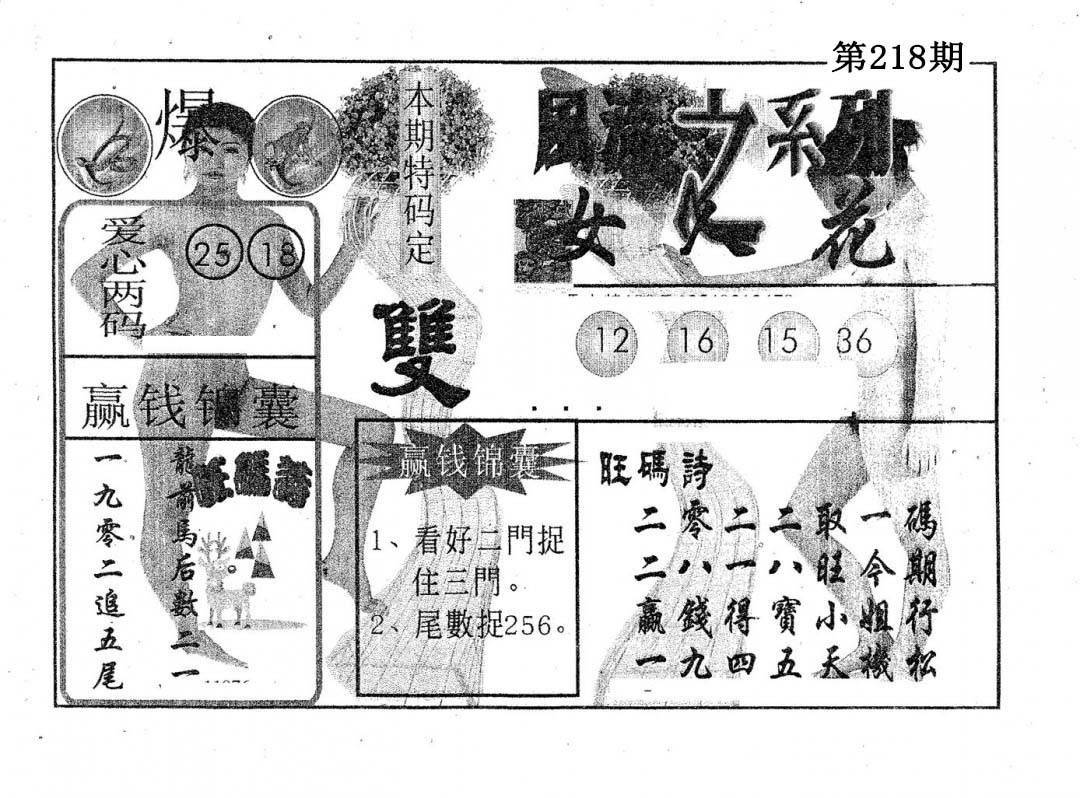 第218期
爆
本期特码定
雙
爱心两码
25 18
赢钱锦囊
龍前馬后數二一
一九零二追五尾
系列
女 花
12 16 15 36
赢钱锦囊
1、看好二門捉
住三門。
2、尾數捉256。
旺碼詩
二零二二取一碼
二八一八旺今期
赢錢得寶小姐行
一九四五天機松